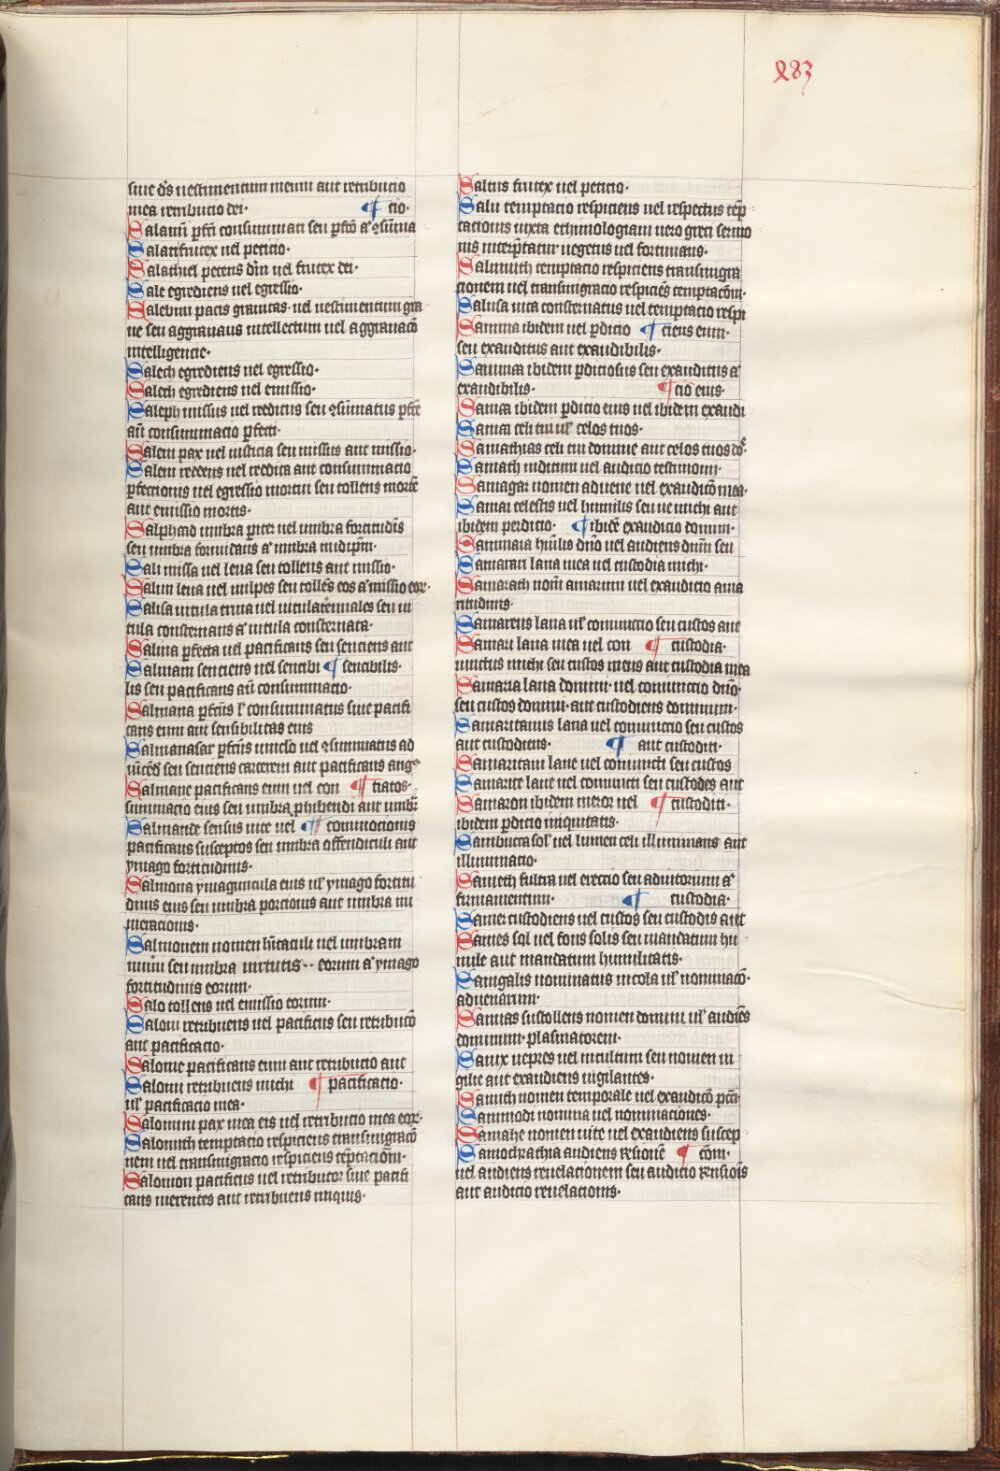 283
siue ds uestimentum meum aut retribucio
mea retribucio dei· ¶ cio·
Salamī pfcī consummati seu pfcō a᷑ ꝯsūma
Salatifrutex uel peticio·
Salathiel petens dm̄ uel frutex dei·
Sale egrediens uel egressio·
Salebim pacis grauitas· uel uestimentum gra
ue seu aggrauans intellectum uel aggrauacō
intelligencie·
Salech egrediens uel egressio·
Salech egrediens uel emissio·
Saleph missus uel rediens seu ꝯsūmatus pfcē
aū consummacio pfecti·
Salem pax uel iusticia seu missus aut missio·
Salem recens uel credita aut consummacio
pfectionis uel egressio mortui seu tollens mortē
aut emissio mortis·
Salphaad umbra pariter uel umbra fortitudīs
seu umbra formidans a᷑ umbra
Sali missa uel lena seu tollens aut missio·
Salim lena uel uulpes seu tollēs eos a᷑ missio eoꝝ·
Salisa uitula trina uel uitula triennales seu ui
tula consternans a᷑ uitula consternata·
Salma pfecta uel pacificans seu senciens aut
Salmam senciens uel sencibi ¶ sencibilis·
lis seu pacificans aū consummacio·
Salmana pfectus l᷑ consummatus siue pacifi
cans eum aut sensibilitas eius
Salmanasar pfcūs uel ꝯsummatus ad
seu senciens carcerem aut pacificans ang᷑
Salmane pacificans eum uel con ¶ tiatos·
summacio eius seu umbra phibendi aut umbr
Salmande sensus uite uel ¶ commocionis
pacificans susceptos seu umbra offendiculi aut
ymago fortitudinis·
Salmona ymaguncula eius ul᷑ ymago fortitu
dinis eius seu umbra porcionis aut umbra nu
meracionis·
Salmonem nomen hītaculi uel umbram
seu umbra uirtutis·· eorum a᷑ ymago
fortitudinis eorum·
Salo tollens uel emissio eorum·
Salom retribuens uel pacificus seu retribucō
aut pacificacio·
Salome pacificans eum aut retribucio aut
Salomi retribuens michi ¶ pacificacio·
ul᷑ pacificacio mea·
Salomim pax mea eis uel retributio mea eoꝝ·
Salomith temptacio respiciens transmigracō
nem uel transmigracio respiciens tēptacionm·
Salomon pacificus uel retributor siue pacifi
cans merentes aut retribuens iniquis·
Saltus frutex uel peticio·
Salu temptacio respiciens uel respectus tēp
tacionis iuxta ethimologiam uero greci sermo
nis interptatur uegetus uel fortunatus·
Salumith temptacio respiciens transmigra
cionem uel transmigracio respiciēs temptacōm·
Salusa uita consternatus uel temptacio respi
Samma ibidem uel pdicio ¶ ciens eum·
seu exauditus aut exaudibilis·
Samaa ibidem pdiciosus seu exauditus a᷑
exaudibilis· ¶ cio eius·
Samaa ibidem pdicio eius uel ibidem exaudi
Samai celi tui ul᷑ celos tuos·
Samathias celi tui domine aut celos tuos ds·
Samath uel audicio testimoni·
Samagar nomen aduene uel exaudicō mea·
Samai celestis uel humilis seu ue michi aut
ibidem perdicio· ¶ ibidē exaudicio domini·
Samaia hūilis dn̄o uel audiens dnm̄ seu
Samaran lana mea uel custodia michi·
Samarath nom̄ amarum uel exaudicio ama
ritudinis·
Samareus lana ul᷑ comunctio seu custos aut
Samari lana mea uel con ¶ custodia·
iunctus michi seu custos meus aut custodia mea
Samaria lana domini· uel coniunctio dn̄o·
seu custos domini· aut custodiens dominum·
Samaritanus lana uel coniunctio seu custos
aut custodiens· ¶ aut custodit·
Samaritani lane uel coniuncti seu custos
Samarite lane uel coniuncti seu custodes aut
Samaron ibidem meror uel ¶ custodia·
ibidem pdicio iniquitatis·
Sambucasol᷑ uel lumen celi illuminans aut
illuminacio·
Samech fultra uel erectio seu adiutorium a᷑
firmamentum· ¶ custodia·
Samer custodiens uel custos seu custodis aut
Sames sol uel fons solis seu mandatum hu
mile aut mandatum humilitatis·
Samgalis nominatus incola ul᷑ nominacō·
aduenarum·
Samias sustollens nomen domini ul᷑ audiēs
dominum· plasmatorem·
Samix uepres uel incultum seu nomen ui
gilie aut exaudiens uigilantes·
Samith nomen temporale uel exaudicō
Sammodi nomina uel nominaciones·
Samahe nomen uite uel exaudiens suscep
Samothrathia audiens ¶ cōm·
uel audiens reuelacionem seu audicio
aut audicio reuelacionis·